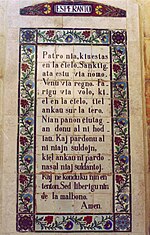 ESPERANTO
Patro nia, kiu estas
en la ĉielo, Sanktig
ata estu via nomo.
Venu via regno. Fa
riĝu via volo, ki
el en la ĉielo, tiel
ankaŭ sur la tero.
Nian panon ĉiutag
an donu al ni hod
iaŭ. Kaj pardonu al
ni niajn ŝuldojn,
kiel ankaŭ ni pardo
nas al niaj ŝuldantoj.
Kaj ne konduku nin en
tenton, Sed liberigu nin
de la malbono.
Amen.